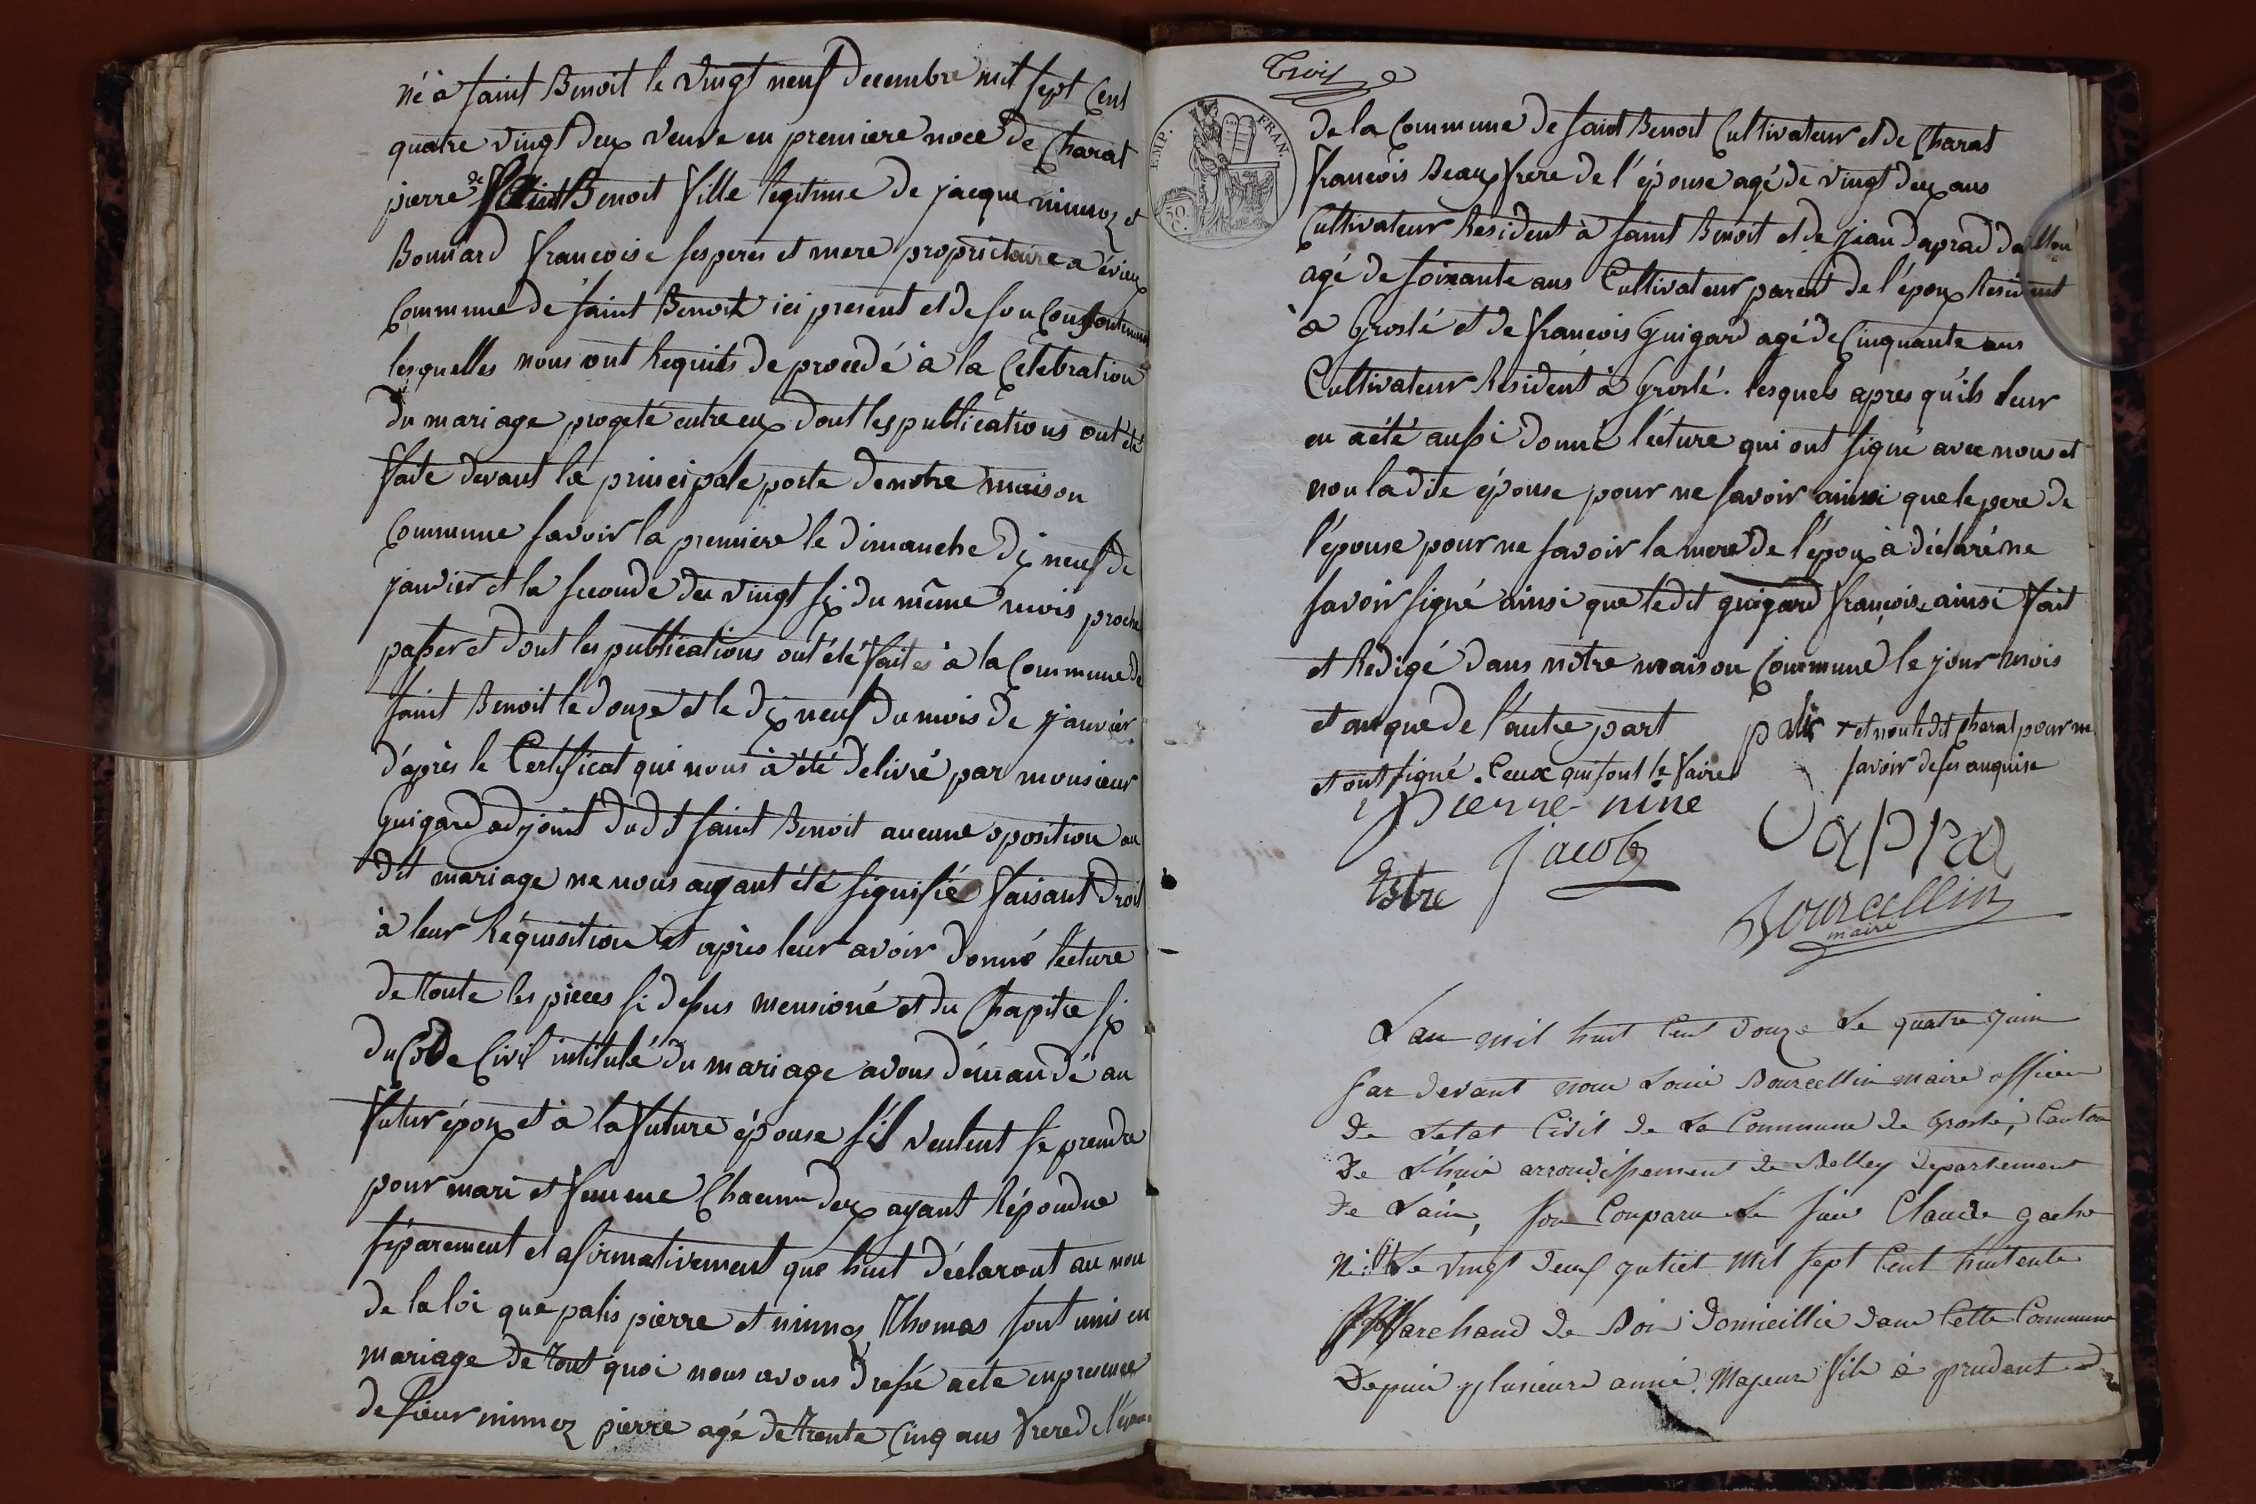 né à saint Benoit le vingt neuf decembre mil sept Cent
quatre vingt deux veuve en premiere noce de Charat
pierre de saint Benoit fille legitime de jacque nimoz et
Bonnard francoise ses peres et mere proprietaire a évieux
Commune de saint Benoit ici present et de son Consentement
lesquelles nous ont Requits de procedé à la Celebration
du mariage progeté entre eux dont les publications ont été
faite devant la principale porte de notre maison
Commune savoir la premiere le dimanche dix neuf de
janvier et la seconde du vingt six du même mois proche
passer et dont les publications ont été faites à la Commune de
saint Benoit le douze et le dix neuf du mois de janvier
d'après le Certificat qui nous à été délivré par monsieur
Guigard adjoint dudt saint Benoit aucune oposition au
dit mariage ne nous ayant été signifié faisant droit
à leur Réquisition et après leur avoir donné lecture
de toute les pieces si dessus mensioné et du Chapitre six
du Code Civil intitulé du mariage avons démandé au
futur époux et à la future épouse s'il veulent se prendre
pour mari et femme Chacun deux ayant Répondue
séparement et afirmativement que huit déclaront au nom
de la loi que palis pierre et nimoz Thomas sont unis en
mariage de tout quoi nous avons dressé acte en presence
de sieur nimoz pierre agé de trente Cinq ans frere de l'épouse
Trois
EMP. FRAN.
50 C.
de la Commune de saint Benoit Cultivateur et de Charat
francois Beaux frere de l'épouse agé de vingt deux ans
Cultivateur Resident à saint Benoit et de jean daprad
agé de soixante ans Cultivateur parent de l'époux Resident
à Groslé et de francois Guigard agé de Cinquante ans
Cultivateur Résident à Groslé. lesquels apres qu'ils leur
en a été aussi donné lecture qui ont signé avec nous et
non la dite épouse pour ne savoir ainsi que le pere de
l'épouse pour ne savoir la mere de l'époux à déclaré ne
savoir signé ainsi que ledit guigard françois, ainsi fait
et Redigé dans notre maison Commune le jour mois
et an que de l'autre part
palis + et non le dit Charat pour ne
savoir de ses anquise
et ont signé. Ceux qui sont le faire
pierre nine
Dappra
jacob
Estre
Bourcellin
maire
L'an mil huit Cent douze Le quatre juin
Par devant nous Louis Bourcellin maire officier
De Letat Civil de La Commune de Groslé, Canton
De L'huis arrondissement de Belley Departement
De Lain, son Comparu Le sieur Claude gache
Né Le vingt deux juliet Mil sept Cent huitente
Marchand De Bois Domicillié dans Cette Commune
Depuis plusieurs année. Majeur fils à prudent